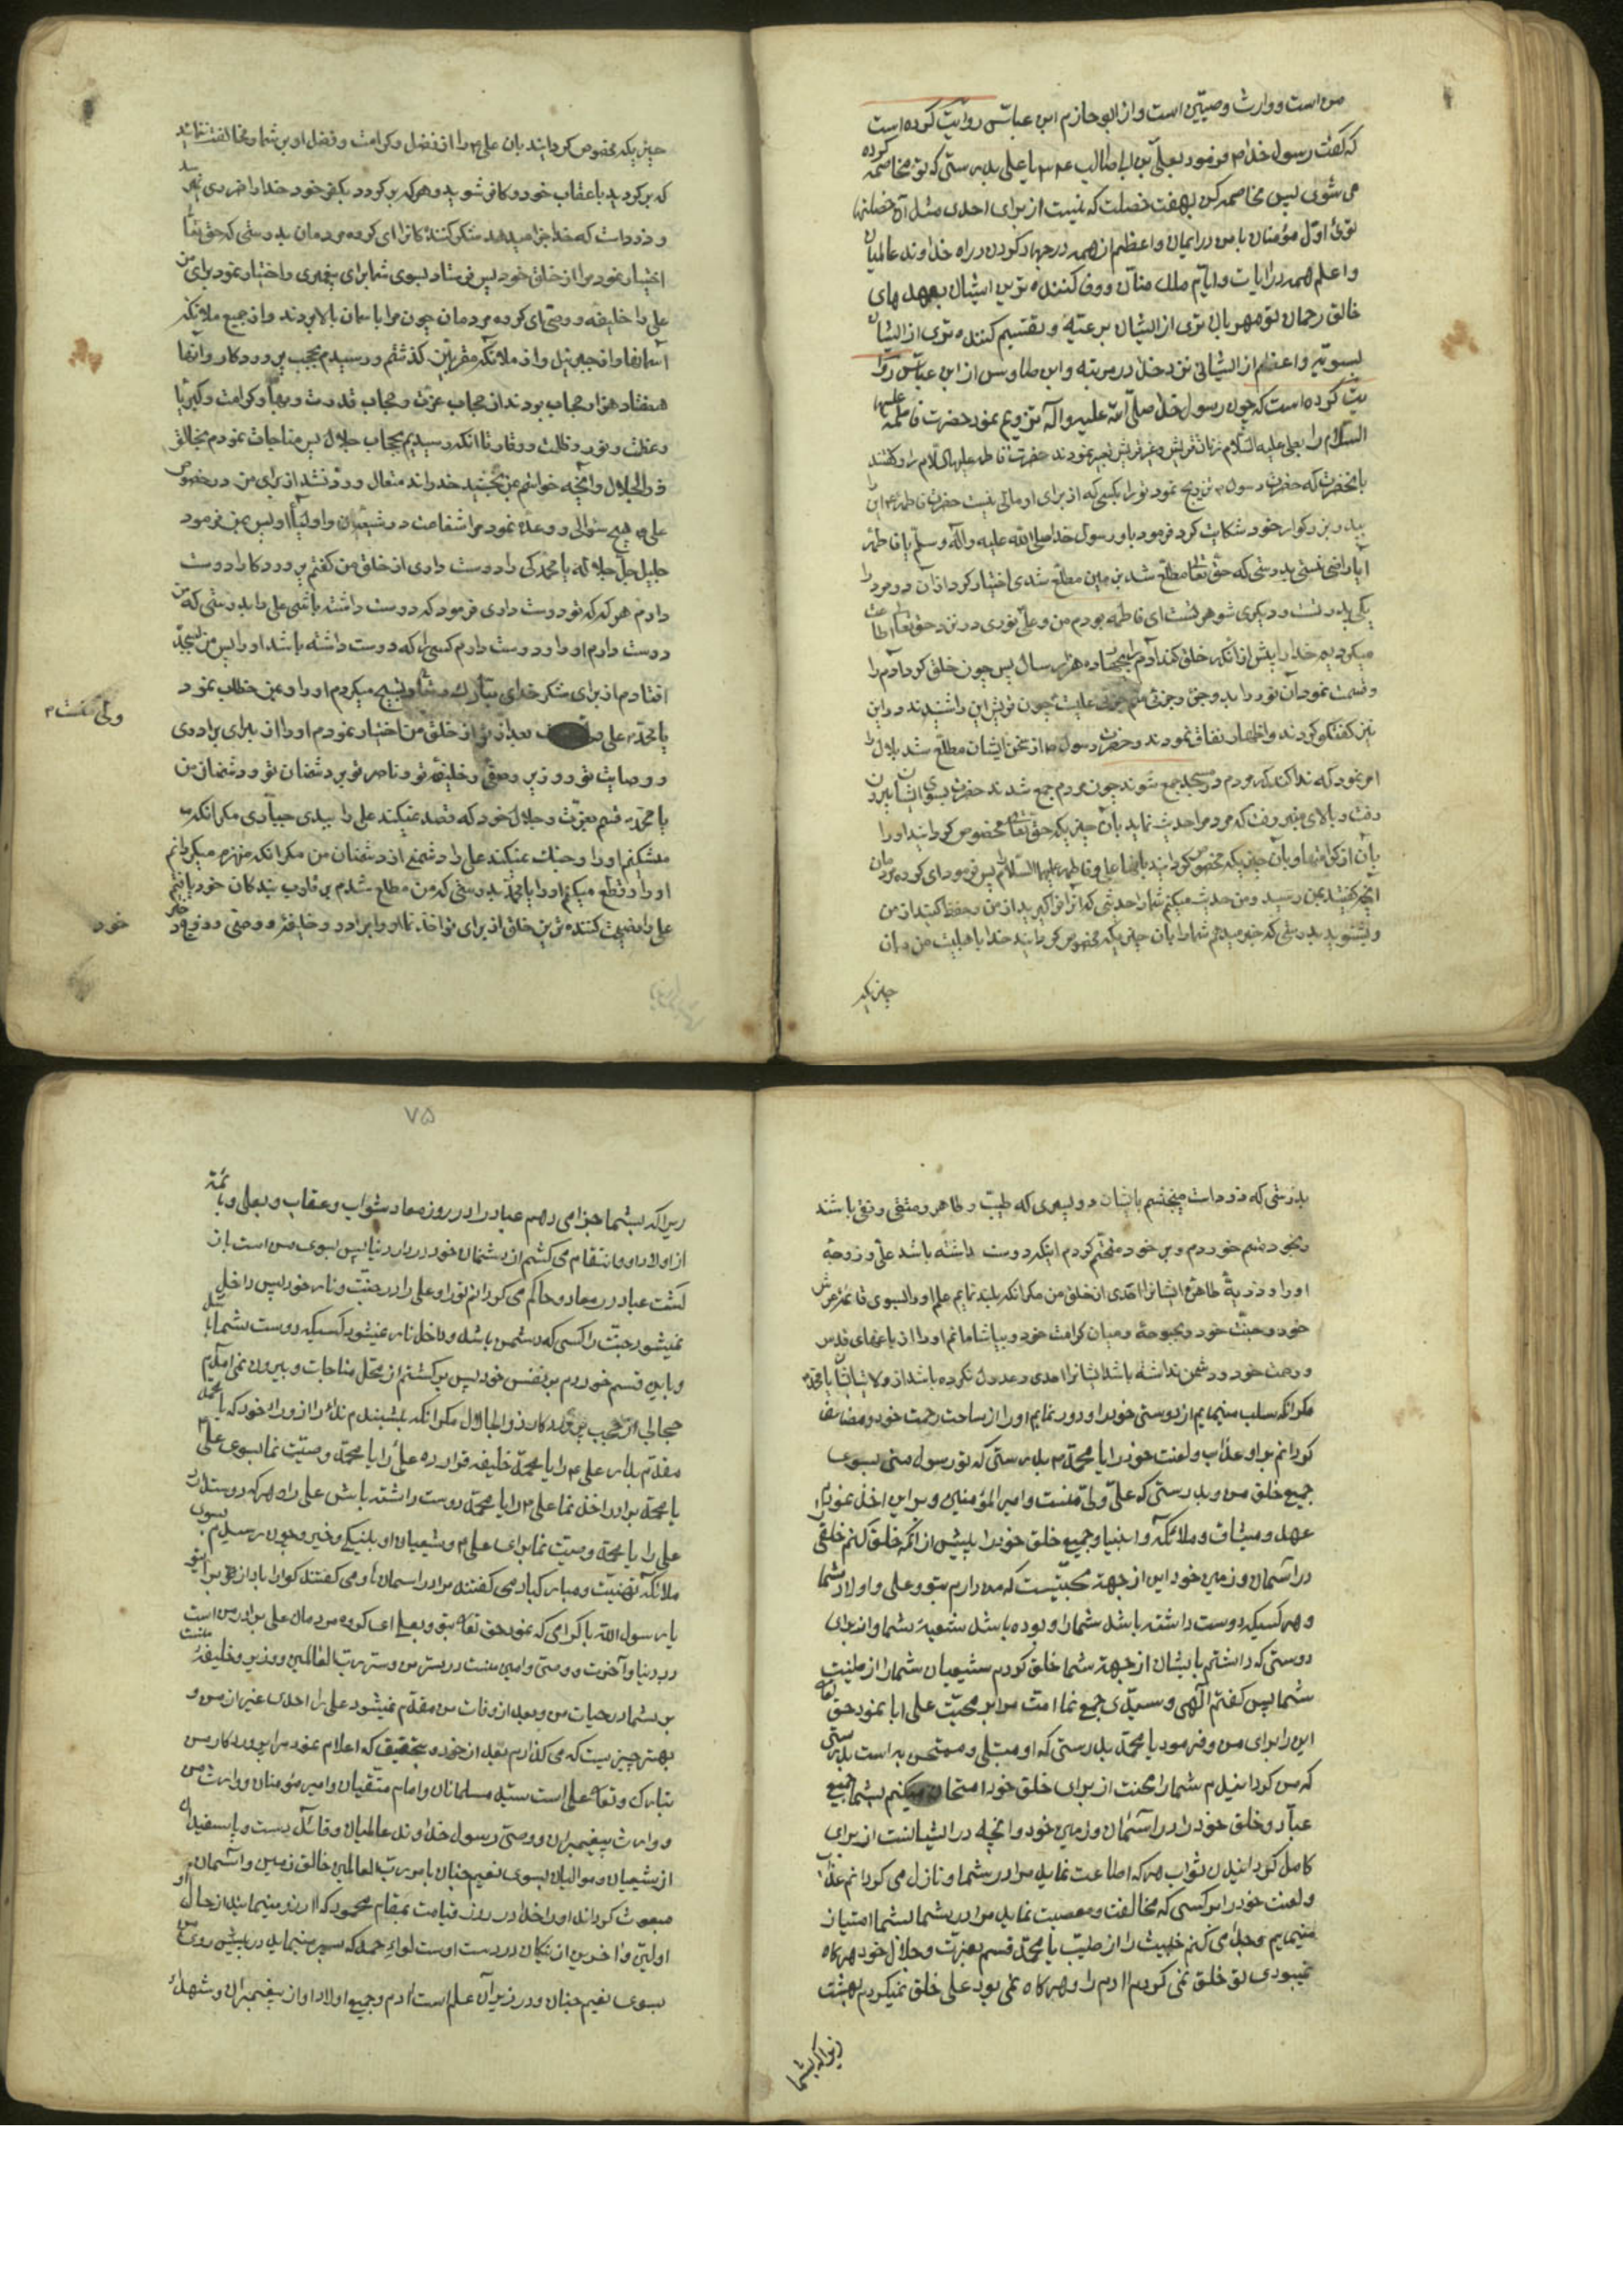 من است و وارث وصیّین است و از ابو حازم ابن عباس روایت کرده است
که گفت رسول خدا ص فرمود بعلی بن ابی طالب ع یا علی بدرستی که تو مخاصمه کرده
می شوی پس مخاصمه کن بهفت خصلت که نیست از برای احدی مثل آن خصلتها
توئی اوّل مؤمنان با من در ایمان و اعظم از همه در جهاد کردن در راه خداوند عالمیان
و اعلم همه در ایات و ایّام ملک منّان و وفا کننده ترین ایشان بعهدهای
خالق رحمان تو مهربان تری از ایشان برعیّة و تقسیم کننده تری از ایشان
بسویّه و اعظم از ایشانی نزد خدا در مرتبه و ابن طاوس از ابن عباس روا
یت کرده است که چون رسول خدا صلّی الله علیه و اله تزویج نمود حضرت فاطمه علیها
السّلام را بعلی علیه السّلام زنان قریش و غیر قریش تعییر نمودند حضرت فاطمه علیها السّلام را و گفتند
بانحضرت که حضرت رسول ص تزویج نمود تو را بکسی که از برای او مالی نیست حضرت فاطمه ع این را
بپدر بزرکوار خود شکایت کرد فرمود باو رسول خدا صلی الله علیه و آله و سلّم یا فاطمه
آیا راضی نیستی بدرستی که حق تعا مطلع شد بزمین مطلع شدی اختیار کرد از آن دو مرد را
یکی پدر تست و دیکری شوهر تست ای فاطمه بودم من و علی نوری در نزد حق تعا اطاعت
میکردیم خدا را پیش از آنکه خلق کند آدم را بچهارده هزار سال پس چون خلق کرد آدم را
و قسمت نمود آن نور را بدو جزء و جزئی منم و جزئی علیست چون قریش این را شنیدند در این
نیز گفتگو کردند و اظهار نفاق نمودند و حضرت رسول ص از سخن ایشان مطلع شد بلال را
امر نمود که ندا کند که مردم در مسجد جمع شوند چون مردم جمع شدند حضرت بسوی ایشان بیرون
رفت و بالای منبر رفت که مردم را حدیث نماید بآن چیزیکه حق تعا مخصوص کردانید او را
بآن از کرامتها و بآن چیزیکه مخصوص کردانید بانها علی و فاطمه علیهما السّلام را پس فرمود ای کروه مردمان
آنچه گفتید بمن رسید و من حدیث میکنم شما را حدیثی که آنرا فرا گیرید از من و حفظ کنید از من
و بشنوید بدرستی که خبر میدهم شما را بآن چیزیکه مخصوص کردانید خدا باهلبیت من و بآن
چیزیکه
چیزیکه مخصوص کردانید بآن علی ع را از فضل و کرامت و فضل او بر شما و مخالفت ننمائید
که برکردید باعقاب خود و کافر شوید و هر که برکردد بکفر خود خدا را ضرری نمیرسد
و زود است که خدا جزا میدهد شکر کنندکانرا ای کروه مردمان بدرستی که حق تعا
اختیار نمود مرا از خلق خود پس فرستاد بسوی شما برای پیغمبری و اختیار نمود برای من
علی را خلیفه و وصّی ای کروه مردمان چون مرا باسمان بالا بردند و از جمیع ملائکه
آسمانها و از جبرئیل و از ملائکه مقربین گذشتم و رسیدم بحجب پروردکار و آنها
هفتاد هزار حجاب بودند از حجاب عزّت و حجاب قدرت و بهاء و کرامت و کبریا
و عظمت و نور و ظلمت و وقار تا انکه رسیدیم بحجاب جلال پس مناجات نمودم بخالق
ذو الجلال و آنچه خواستم بمن بخشید خداوند متعال و رد نشد از برای من در خصوص
علی ع هیچ سئوالی و وعده نمود مرا شفاعت در شیعیان و اولیاء او پس بمن فرمود
جلیل جلّ جلاله یا محمّد کی را دوست داری از خلق من گفتم پروردکارا دوست
دارم هر که که تو دوست داری فرمود که دوست داشته باشی علی را بدرستی که من
دوست دارم او را و دوست دارم کسی را که دوست داشته باشد او را پس من بسجده
افتادم از برای شکر خدای تبارک و تعا و تسبیح میکردم او را و بمن خطاب نمود
یا محمّد ص علی ولی منست بعد از تو از خلق من اختیار نمودم او را از برای برادری
و وصایت تو و وزیر و صفی و خلیفه تو و ناصر تو بر دشمنان تو و دشمنان من
یا محمّد ص قسم بعزّت و جلال خود که قصد نمیکند علی را ببدی جبّاری مکر انکه
میشکنم او را و جنک نمیکند علی را دشمنی از دشمنان من مکر انکه منهزم میکردانم
او را و قطع میکنم او را یا محمّد بدرستی که من مطلع شدم بر قلوب بندکان خود یافتم
علی را نصیحت کننده ترین خلق از برای تو اخذ نما او را برادر و خلیفه و وصّی و زوج دختر
ولی منست ۲
خود
بدرستی که زود است میبخشم بایشان دو پسری که طیّب و طاهر و متقی و نقی باشند
و بخود قسم خوردم و بر خود متحتّم کردم اینکه دوست داشته باشد علی و زوجه
او را و ذریة طاهره ایشانرا احدی از خلق من مکر انکه بلند نمایم علم او را بسوی قائمه عرش
خود و جنّت خود و بحبوحه و میان کرامت خود و بیاشامانم او را از باغهای قدس
و رحمت خود و دشمن نداشته باشد ایشانرا احدی و عدول نکرده باشد از ولایت ایشان یا محمّد ص
مکر انکه سلب مینمایم از دوستی خود او را و دور نمایم او را از ساحت رحمت خود و مضاعف
کردانم بر او عذاب و لعنت خود را یا محمّد ص بدرستی که تو رسول منی بسوی
جمیع خلق من و بدرستی که علی ولی منست و امیر المؤمنین و بر این اخذ نمودم
عهد و میثاق و ملائکه و انبیا و جمیع خلق خود را پیش از آنکه خلق کنم خلقی
در آسمان و زمین خود این از جهة محبّتیست که من دارم بتو و علی و اولاد شما
و هر کسیکه دوست داشته باشد شما را و بوده باشد شیعة شما و از برای
دوستی که داشتم بایشان از جهة شما خلق کردم شیعیان شما را از طینت
شما پس گفتم الهی و سیّدی جمع نما امّت مرا بر محبّت علی ابا نمود حق تعا
این را برای من و فرمود یا محمّد بدرستی که او مبتلی و ممتحن به است بدرستی
که من کردانیدم شما را محنت از برای خلق خود امتحان میکنم بشما جمیع
عباد و خلق خود را در آسمان و زمین خود و آنچه در ایشانست از برای
کامل کردانیدن ثواب هر که اطاعت نماید مرا در شما و نازل می کردانم عذاب
و لعنت خود را بر کسی که مخالفت و معصیت نماید مرا در شما بشما امتیاز
مینمایم و جدا می کنم خبیث را از طیّب یا محمّد قسم بعزت و جلال خود هر کاه
نمیبودی تو خلق نمی کردم ادم را و هر کاه نمی بود علی خلق نمیکردم بهشت
زیرا که بشما
۷۵
زیرا که بشما جزا می دهم عباد را در روز معاد بثواب و عقاب و بعلی و بائمّه
از اولاد او و انتقام می کشم از دشمنان خود در دار دنیا پس بسوی من است باز
کشت عباد در معاد و حاکم می کردانم تو را و علی را در جنّت و نار خود پس داخل
نمیشود جنّت را کسی که دشمن باشد و داخل نار نمیشود کسیکه دوست شما باشد
و باین قسم خوردم بر نفس خود پس بر کشتم از محّل مناجات و بیرون نمی امدم
حجابی از حجب پروردکار ذو الجلال مکر انکه میشنیدم ندائی را از وراء خود که یا محمّد
مقدّم بدار علی ع را یا محمّد خلیفه قرار ده علی را یا محمّد وصیّت نما بسوی علی
یا محمّد برادر اخذ نما علی ع را یا محمّد دوست داشته باش علی را و هر که دوستدارد
علی را یا محمّد وصیت نما برای علی ع و شیعیان او بنیکی و خیر و چون رسیدم بسوی
ملائکه تهنیت و مبارکباد می کفتند مرا در اسمانها و می کفتند کوارا باد از برای تو
یا رسول الله باکرامی که نمود حق تعا بتو و بعلی ای کروه مردمان علی برادر من است
در دنیا و آخرت و وصّی و امین منست در سرّ من و سرّ ربّ العالمین و وزیر و خلیفة منست
بر شما در حیات من و بعد از وفات من مقدّم نمیشود علی را احدی غیر از من و
بهتر چیزیست که می کذارم بعد از خود و بتحقیق که اعلام نمود مرا پروردکار من
تبارک و تعا علی است سیّد مسلمانان و امام متّقیان و امیر مؤمنان و وارث من
و وارث پیغمبران و وصّی رسول خداوند عالمیان و قائد دست و پا سفیدان
از شیعیان و موالیان بسوی نعیم جنان بامر ربّ العالمین خالق زمین و اسمان
مبعوث کرداند او را خدا در روز قیامت بمقام محمود که ارزو مینمایند از حال او
اولین و آخرین از نیکان در دست اوست لواء حمد که سیر مینماید در پیش روی من
بسوی نعیم جنان و در زیر آن علم است ادم و جمیع اولاد او از پیغمبران و شهداء